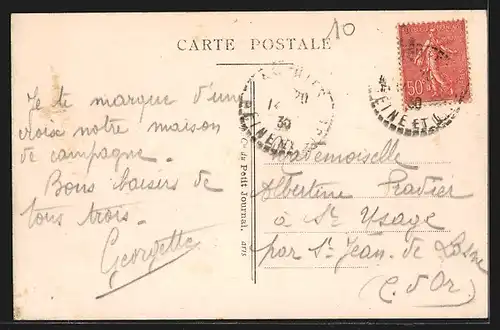 10
CARTE POSTALE
50c
30
SEINE ET
20
30
Je te marque d'une
croix notre maison
de campagne.
Bons baisers de
tous trois.
Georgette
du Petit Journal.
Mademoiselle
Albertine Pradier
à St Usage
par St Jean de Losne
(C. d'Or)